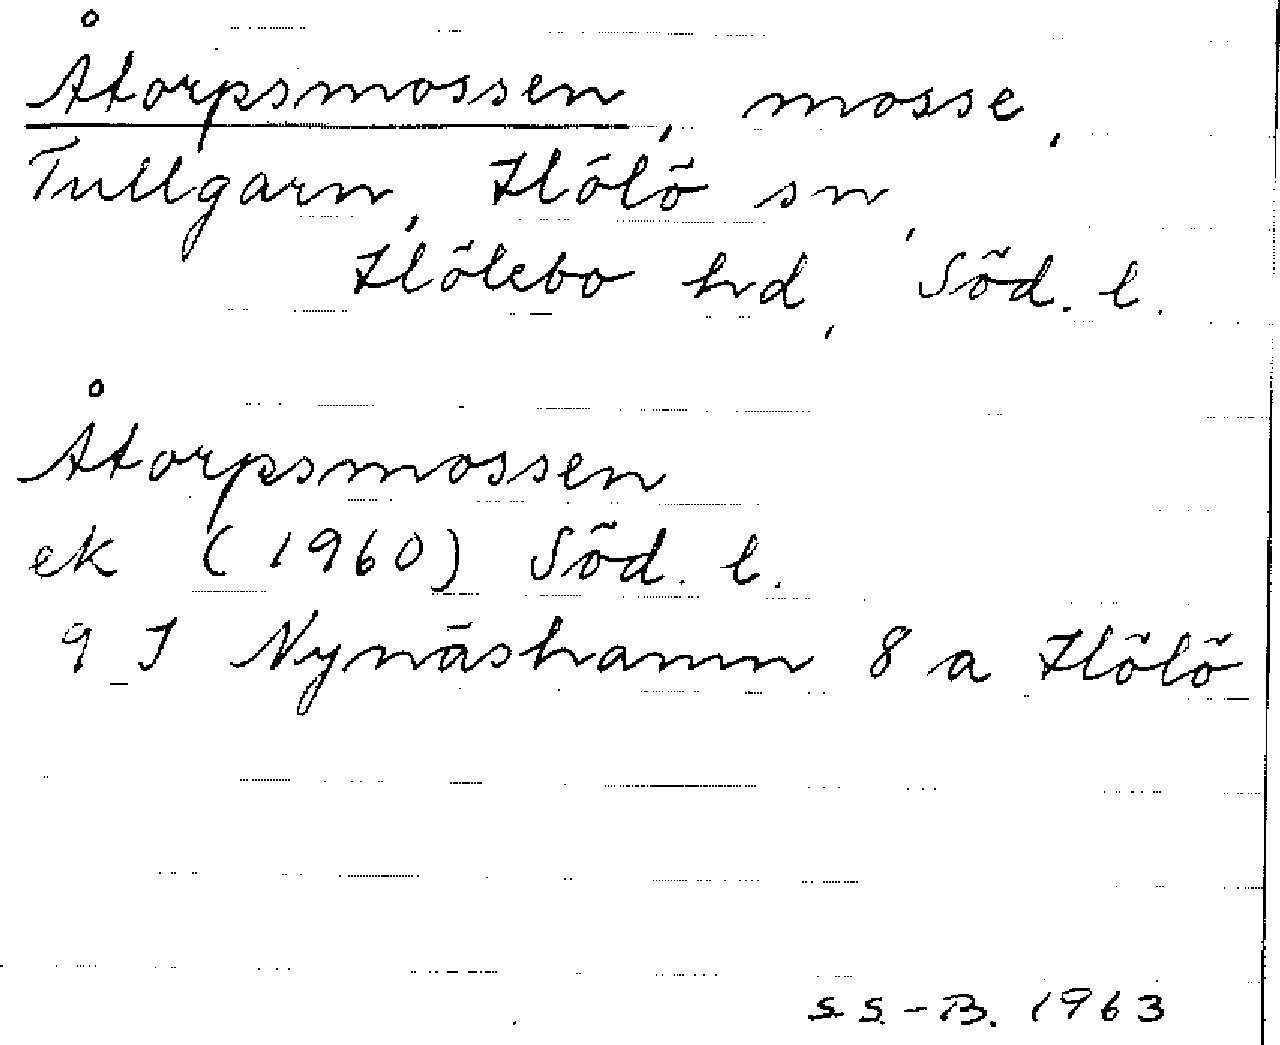 Åtorpsmossen, mosse,
Tullgarn, Hölö sn,
Hölebo hd, Söd. l.
Åtorpsmossen
ek (1960) Söd. l.
9 I Nynäshamn 8 a Hölö
S S - B. 1963